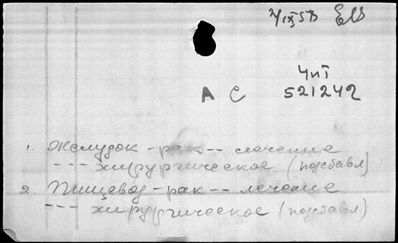 ЧиТ
А С 521242
1. Желудок - рак -- лечение
--- хирургическое (подставл)
2. Пищевод - рак -- лечение
--- хирургическое (подставл)